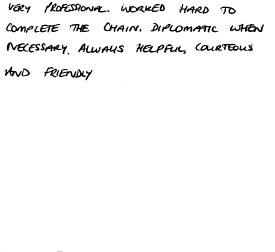 VERY PROFESSIONAL. WORKED HARD TO
COMPLETE THE CHAIN. DIPLOMATIC WHEN
NECESSARY. ALWAYS HELPFUL, COURTEOUS
AND FRIENDLY